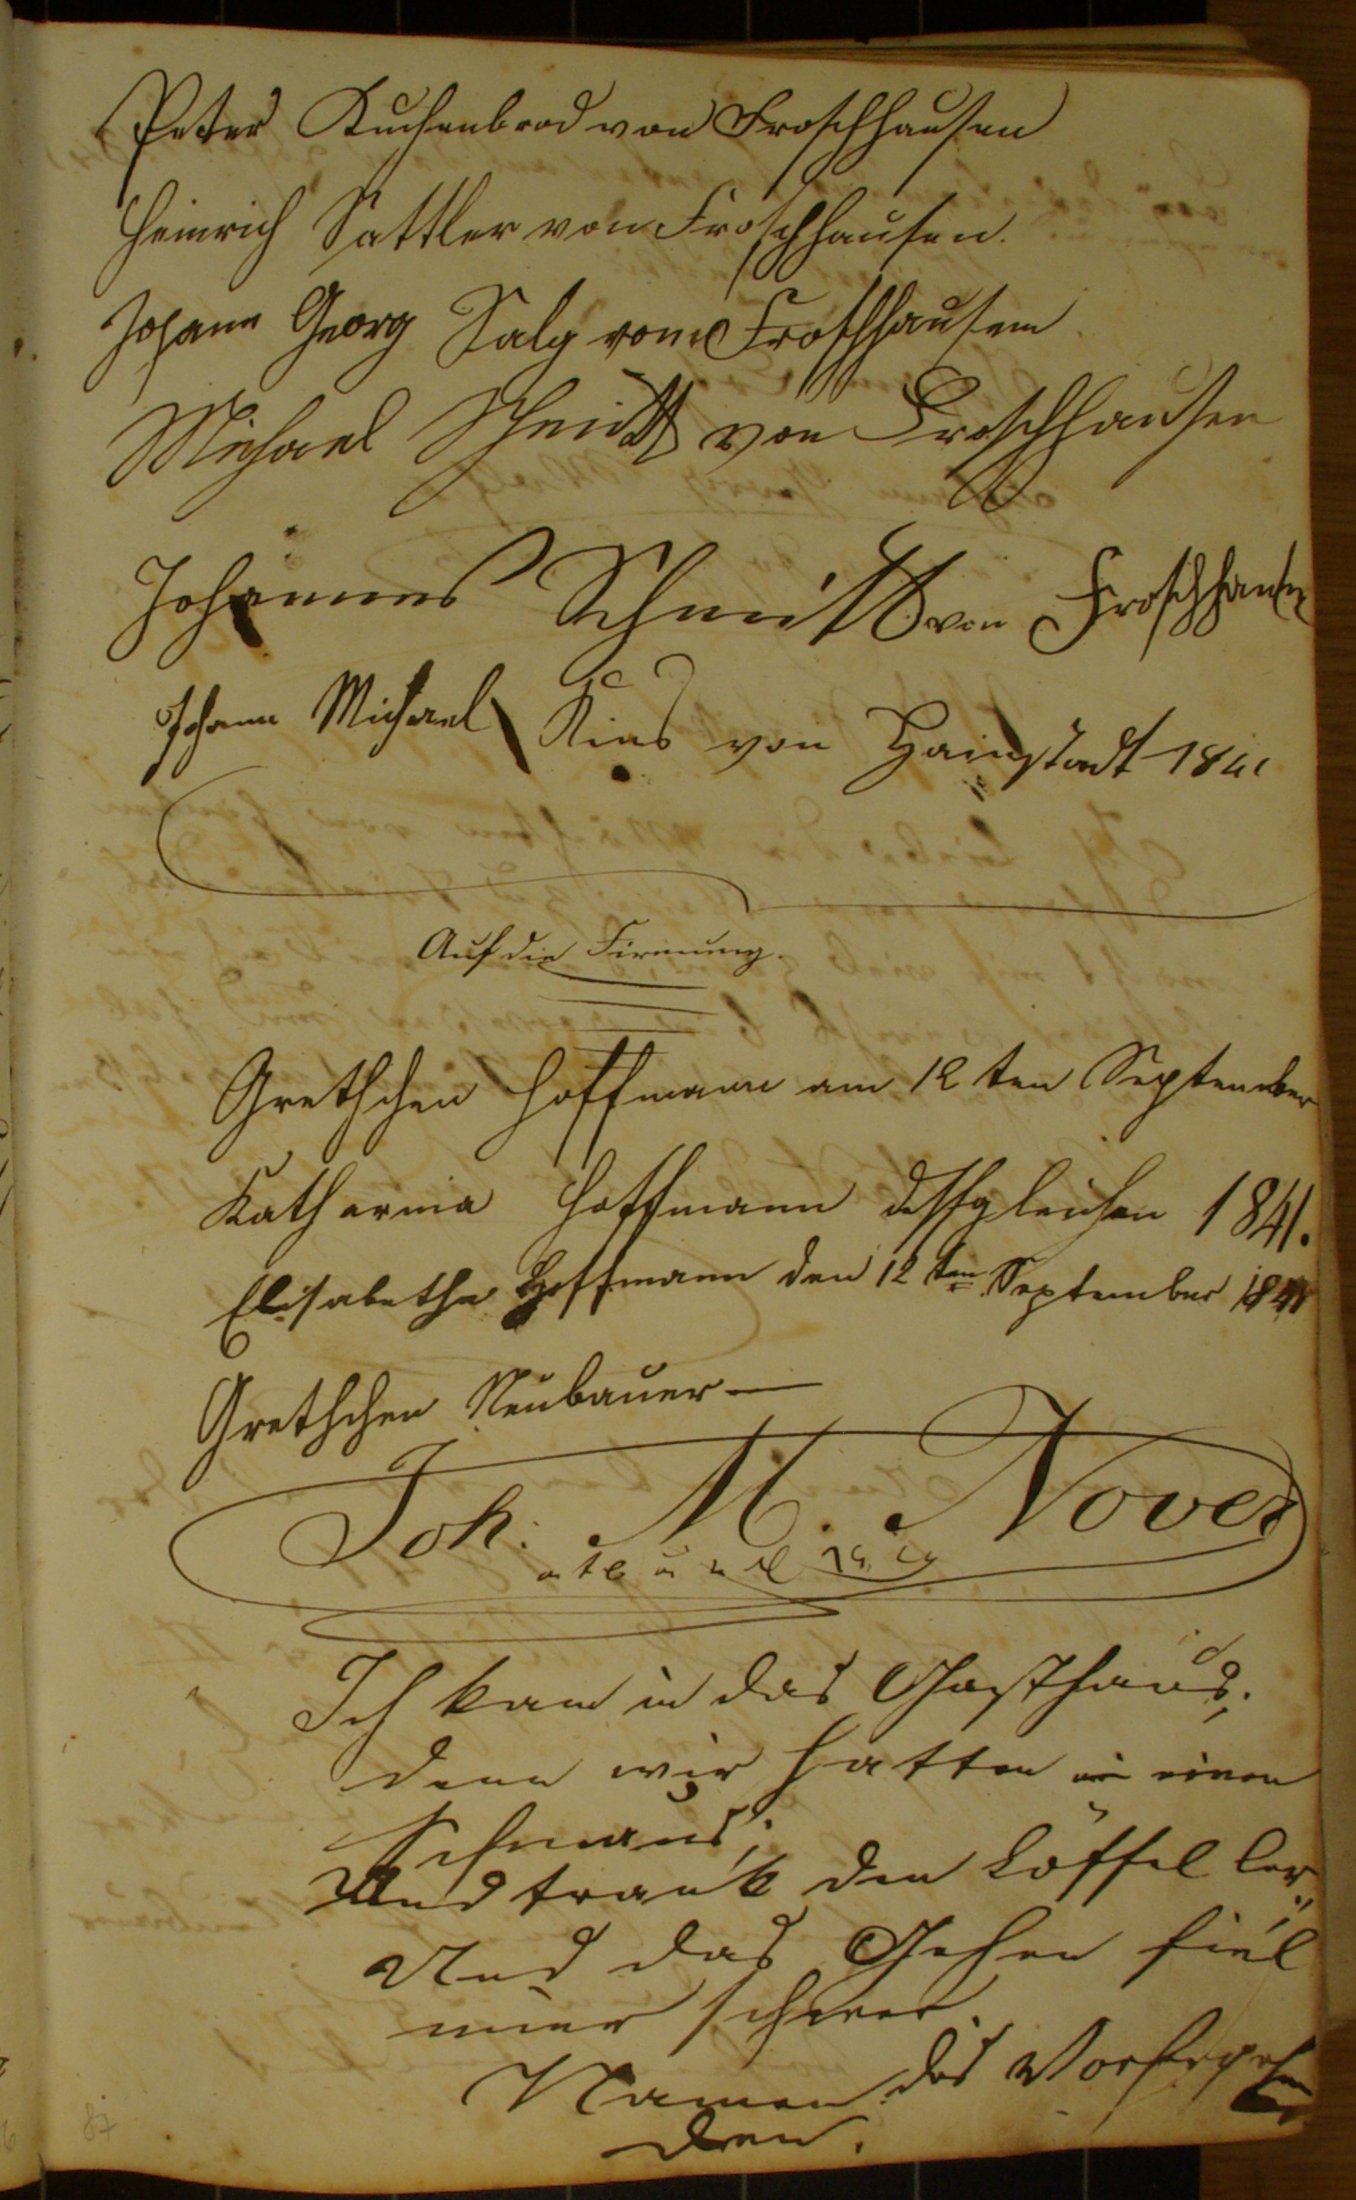 Peter Kuchenbrod von Froschhausen
Heinrich Sattler von Froschhausen.
Johann Georg Salg von Froschhausen
Michael Schmidt von Froschhausen
Johannes Schmitt von Froschhausen
Johann Michael Kins von Hainstadt 1841
Auf die Firmung.
Grethchen Hoffmann am 12 ten September
Katharina Hoffmann dessgleichen 1841.
Elisabetha Hoffmann den 12 ten September 1841
Grethchen Neubauer
Joh. M. Nover
Ich kam in das Gasthaus,
denn wir hatten einen
Schmaus;
Und trank den Löffel ler,
Und das Gehen fiel
mier schwer.
Namen des Vorhergehen
den.